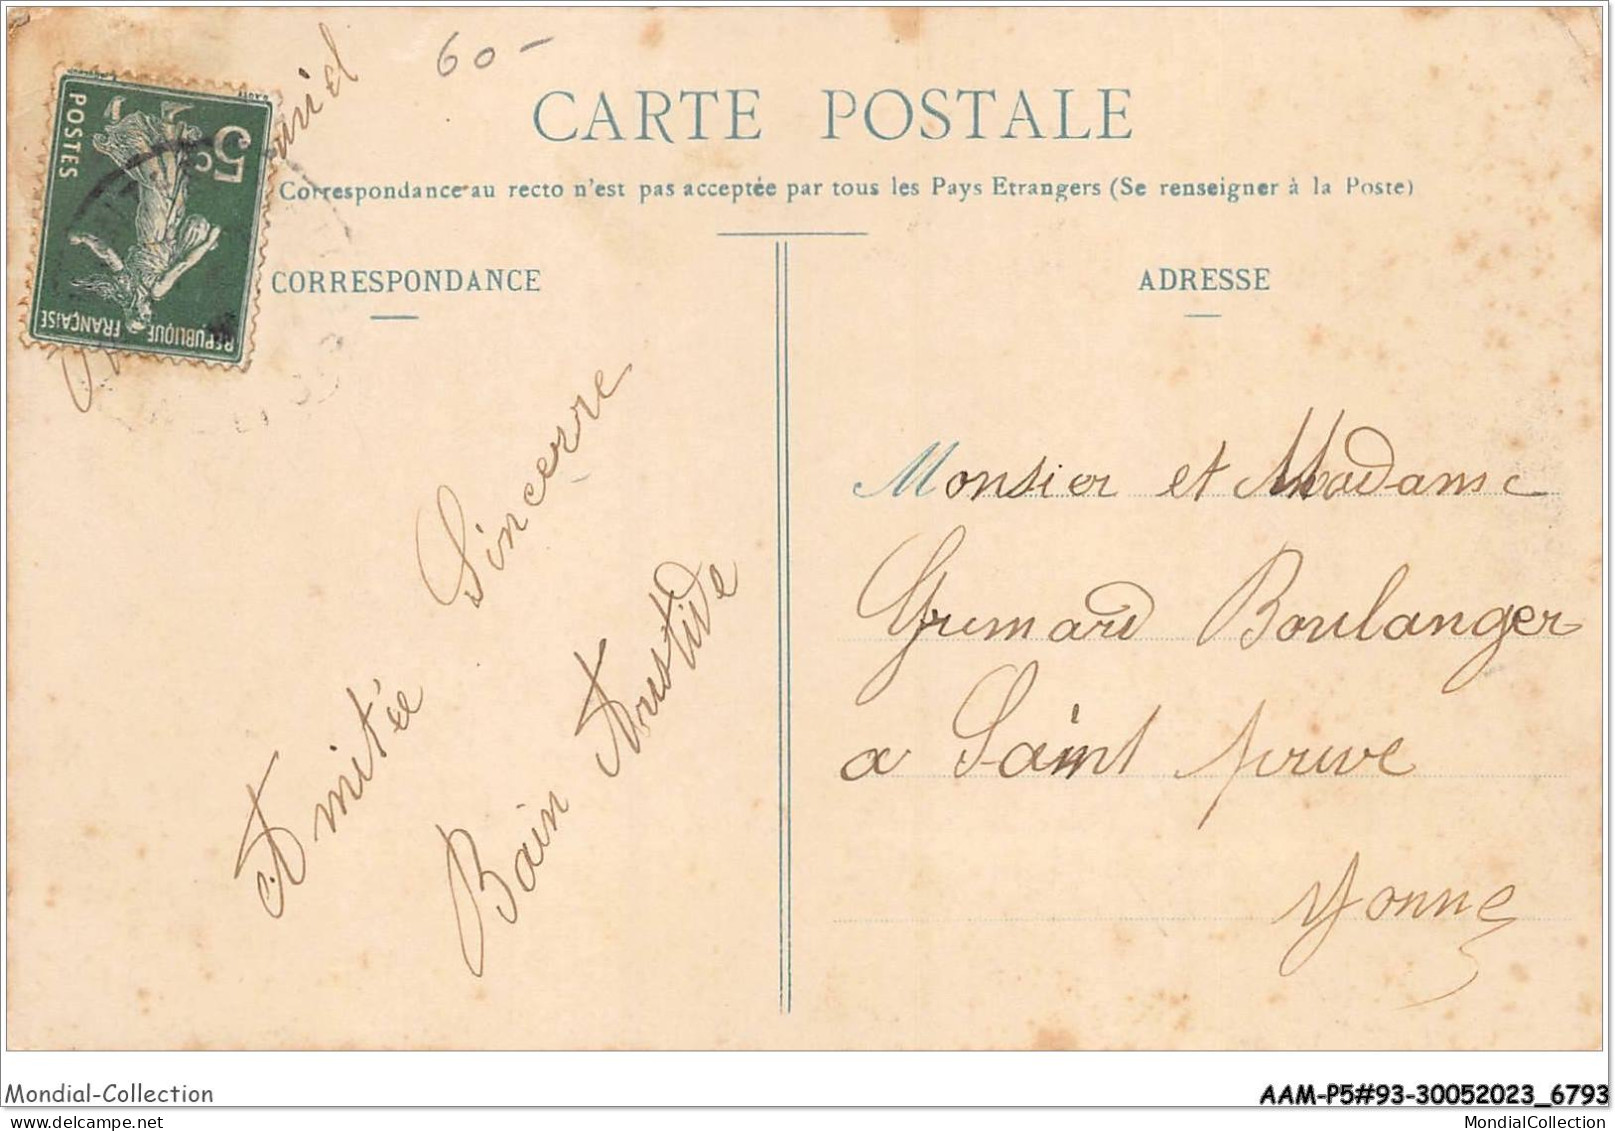 60-
CARTE POSTALE
Correspondance au recto n'est pas acceptée par tous les Pays Etrangers (Se renseigner à la Poste)
5c
POSTES
REPUBLIQUE FRANÇAISE
CORRESPONDANCE
Amitée Sincerre
Bain Austide
ADRESSE
Monsier et Madame
Gremard Boulanger
a Saint prive
Yonne
Mondial-Collection
AAM-P5#93-30052023_6793
MondialCollection